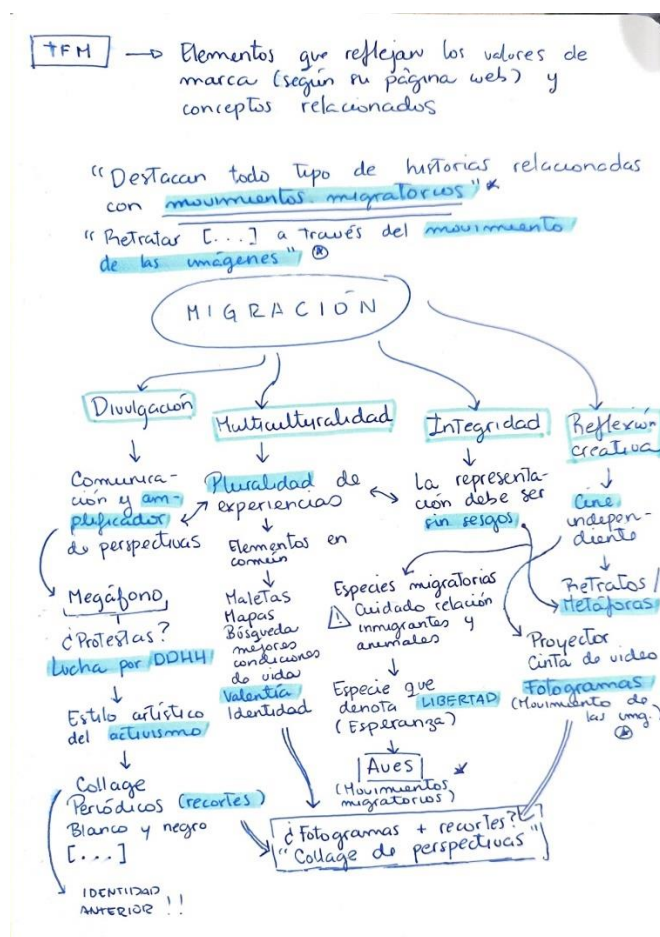 TFM → Elementos que reflejan los valores de
marca (según su página web) y
conceptos relacionados
"Destacan todo tipo de historias relacionadas
con movimientos migratorios" *
"Retratar [...] a través del movimiento
de las imágenes" ⊛
MIGRACIÓN
Divulgación
Comunica-
ción y am-
plificador
de perspectivas
Megáfono
¿Protestas?
Lucha por DDHH
Estilo artístico
del activismo
Collage
Periódicos (recortes)
Blanco y negro
[...]
IDENTIDAD
ANTERIOR !!
Multiculturalidad
Pluralidad de
experiencias
Elementos en
común
Maletas
Mapas
Búsqueda
mejores
condiciones
de vida
Valentía
Identidad
Integridad
La representa-
ción debe ser
sin sesgos
Especies migratorias
⚠ Cuidado relación
inmigrantes y
animales
Especie que
denota LIBERTAD
(Esperanza)
Aves *
(Movimientos
migratorios)
Reflexión
creativa
Cine
indepen-
diente
Retratos /
Metáforas
Proyector
Cinta de video
Fotogramas
(Movimiento de
las img.)
⊛
¿Fotogramas + recortes?
"Collage de perspectivas"